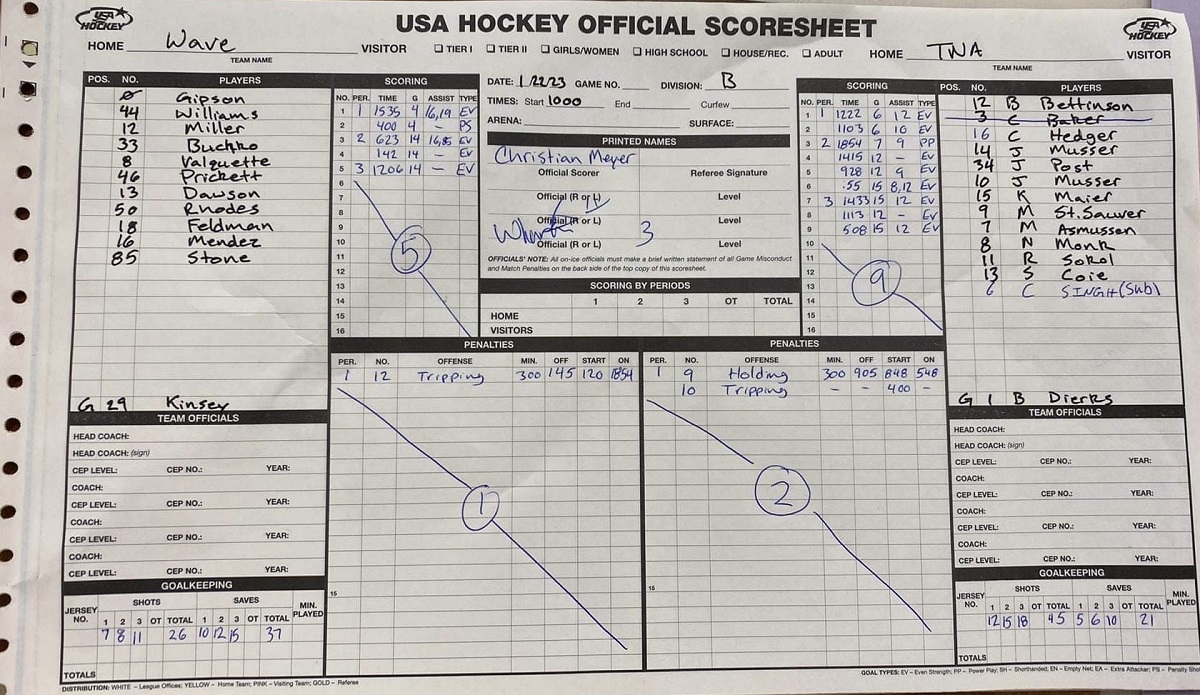 USA HOCKEY OFFICIAL SCORESHEET
USA HOCKEY
USA HOCKEY
HOME Wave VISITOR
TEAM NAME
❑ TIER I ❑ TIER II ❑ GIRLS/WOMEN ❑ HIGH SCHOOL ❑ HOUSE/REC. ❑ ADULT
HOME TWA VISITOR
TEAM NAME
POS. NO. PLAYERS
0 Gipson
44 Williams
12 Miller
33 Buchko
8 Valquette
46 Prickett
13 Dawson
50 Rhodes
18 Feldman
16 Mendez
85 Stone
G 29 Kinsey
SCORING
NO. PER. TIME G ASSIST TYPE
1 1 1535 4 16,19 EV
2 400 4 - PS
3 2 623 14 16,85 EV
4 142 14 - EV
5 3 1206 14 - EV
6
7
8
9
10
11
12
13
14
15
16
5
DATE: 1/22/23 GAME NO. DIVISION: B
TIMES: Start 1000 End Curfew
ARENA: SURFACE:
PRINTED NAMES
Christian Meyer
Official Scorer Referee Signature
Official (R or L) Level
Official (R or L) Level
3
Official (R or L) Level
OFFICIALS' NOTE: All on-ice officials must make a brief written statement of all Game Misconduct
and Match Penalties on the back side of the top copy of this scoresheet.
SCORING BY PERIODS
1 2 3 OT TOTAL
HOME
VISITORS
SCORING
NO. PER. TIME G ASSIST TYPE
1 1 1222 6 12 EV
2 1103 6 10 EV
3 2 1854 7 9 PP
4 1415 12 - EV
5 928 12 9 EV
6 .55 15 8,12 EV
7 3 1433 15 12 EV
8 1113 12 - EV
9 508 15 12 EV
10
11
12
13
14
15
16
9
POS. NO. PLAYERS
12 B Bettinson
3 C Baker
16 C Hedger
14 J Musser
34 J Post
10 J Musser
15 K Maier
9 M St.Sauver
7 M Asmussen
8 N Monk
11 R Sokol
13 S Coie
6 C SINGH (Sub)
G 1 B Dierks
PENALTIES
PER. NO. OFFENSE MIN. OFF START ON
1 12 Tripping 300 145 120 1854
1
15
PENALTIES
PER. NO. OFFENSE MIN. OFF START ON
1 9 Holding 300 905 848 548
10 Tripping - - 400 -
2
15
TEAM OFFICIALS
HEAD COACH:
HEAD COACH: (sign)
CEP LEVEL: CEP NO.: YEAR:
COACH:
CEP LEVEL: CEP NO.: YEAR:
COACH:
CEP LEVEL: CEP NO.: YEAR:
COACH:
CEP LEVEL: CEP NO.: YEAR:
GOALKEEPING
JERSEY NO. SHOTS SAVES MIN. PLAYED
1 2 3 OT TOTAL 1 2 3 OT TOTAL
7 8 11 26 10 12 15 37
TOTALS
TEAM OFFICIALS
HEAD COACH:
HEAD COACH: (sign)
CEP LEVEL: CEP NO.: YEAR:
COACH:
CEP LEVEL: CEP NO.: YEAR:
COACH:
CEP LEVEL: CEP NO.: YEAR:
COACH:
CEP LEVEL: CEP NO.: YEAR:
GOALKEEPING
JERSEY NO. SHOTS SAVES MIN. PLAYED
1 2 3 OT TOTAL 1 2 3 OT TOTAL
12 15 18 45 5 6 10 21
TOTALS
DISTRIBUTION: WHITE – League Offices; YELLOW – Home Team; PINK – Visiting Team; GOLD – Referee
GOAL TYPES: EV – Even Strength; PP – Power Play; SH – Shorthanded; EN – Empty Net; EA – Extra Attacker; PS – Penalty Sho